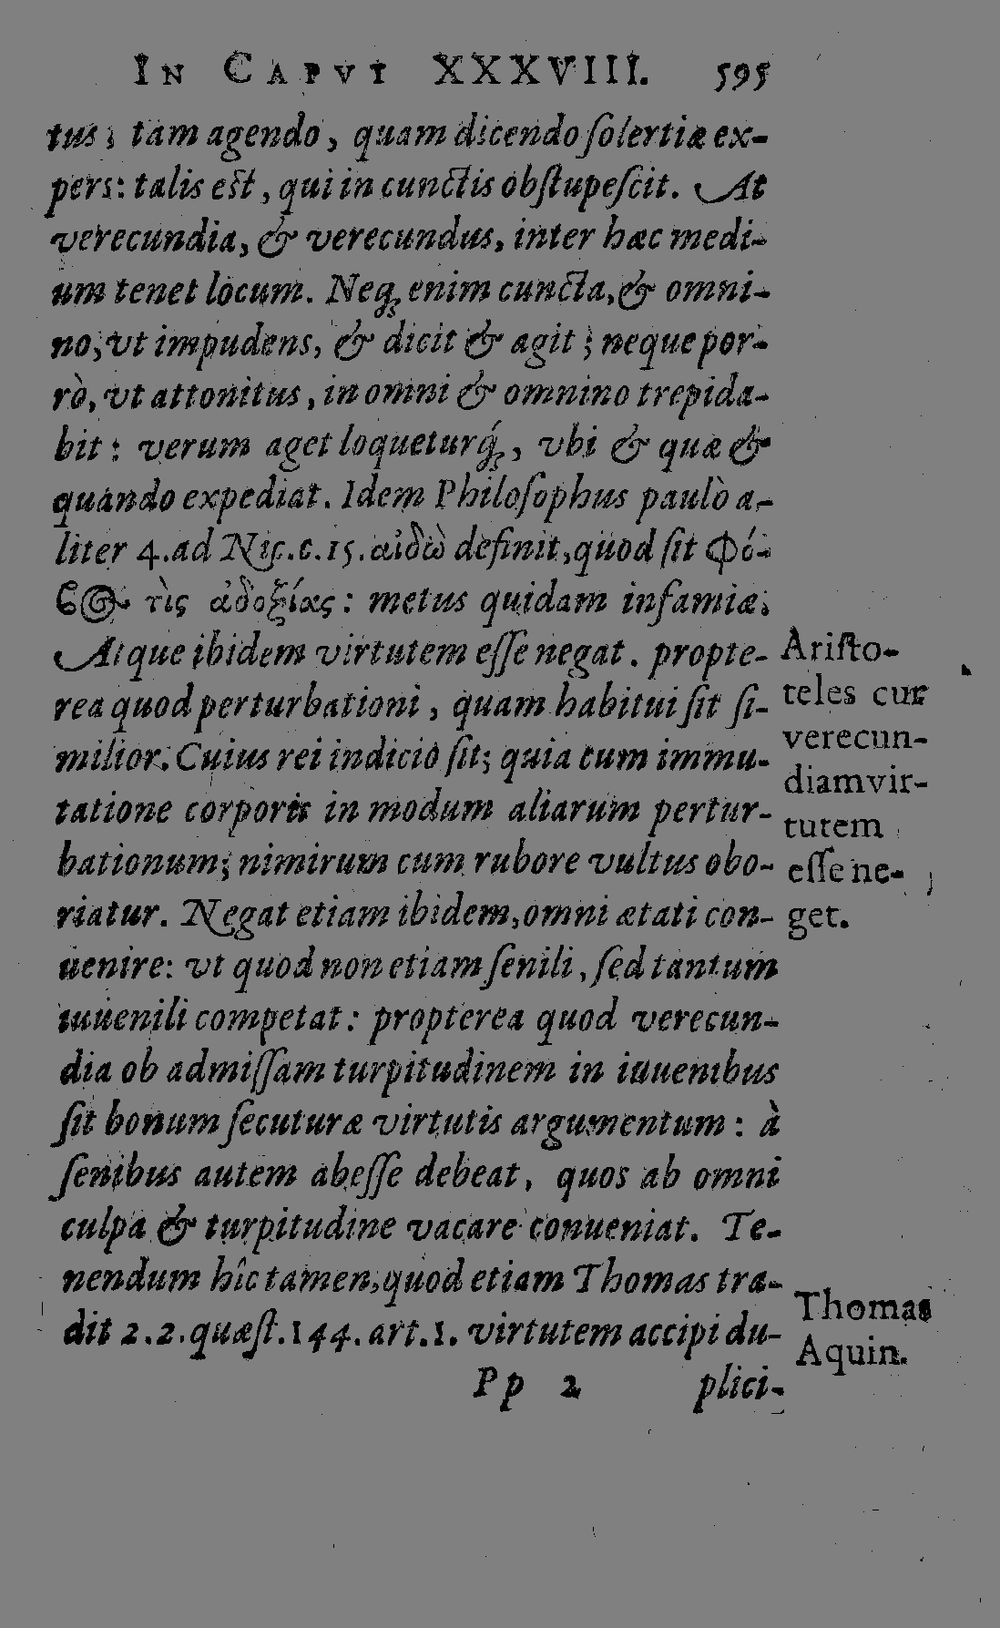 IN CAPVT XXXVIII. 595
tus; tam agendo, quam dicendo ſolertiæ ex-
pers: talis est, qui in cunctis obſtupeſcit. At
verecundia, & verecundus, inter hæc medi-
um tenet locum. Neq; enim cuncta, & omni-
no, vt impudens, & dicit & agit; neque por-
rò, vt attonitus, in omni & omnino trepida-
bit: verum aget loqueturq́;, vbi & quæ &
quando expediat. Idem Philoſophus paulò a-
liter 4. ad Nic. c. 15. αἰδὼ definit, quod ſit Φό-
ϐος τὶς ἀδοξίας: metus quidam infamiæ.
Atque ibidem virtutem eſſe negat. propte-
rea quod perturbationi, quam habitui ſit ſi-
milior. Cuius rei indicio ſit; quia cum immu-
tatione corporis in modum aliarum pertur-
bationum; nimirum cum rubore vultus obo-
riatur. Negat etiam ibidem, omni ætati con-
uenire: vt quod non etiam ſenili, ſed tantum
iuuenili competat: propterea quod verecun-
dia ob admiſſam turpitudinem in iuuenibus
ſit bonum ſecuturæ virtutis argumentum: à
ſenibus autem abeſſe debeat, quos ab omni
culpa & turpitudine vacare conueniat. Te-
nendum hîc tamen, quod etiam Thomas tra-
dit 2. 2. quæſt. 144. art. 1. virtutem accipi du-
Pp 2 plici-
Ariſto-
teles cur
verecun-
diam vir-
tutem
eſſe ne-
get.
Thomas
Aquin.